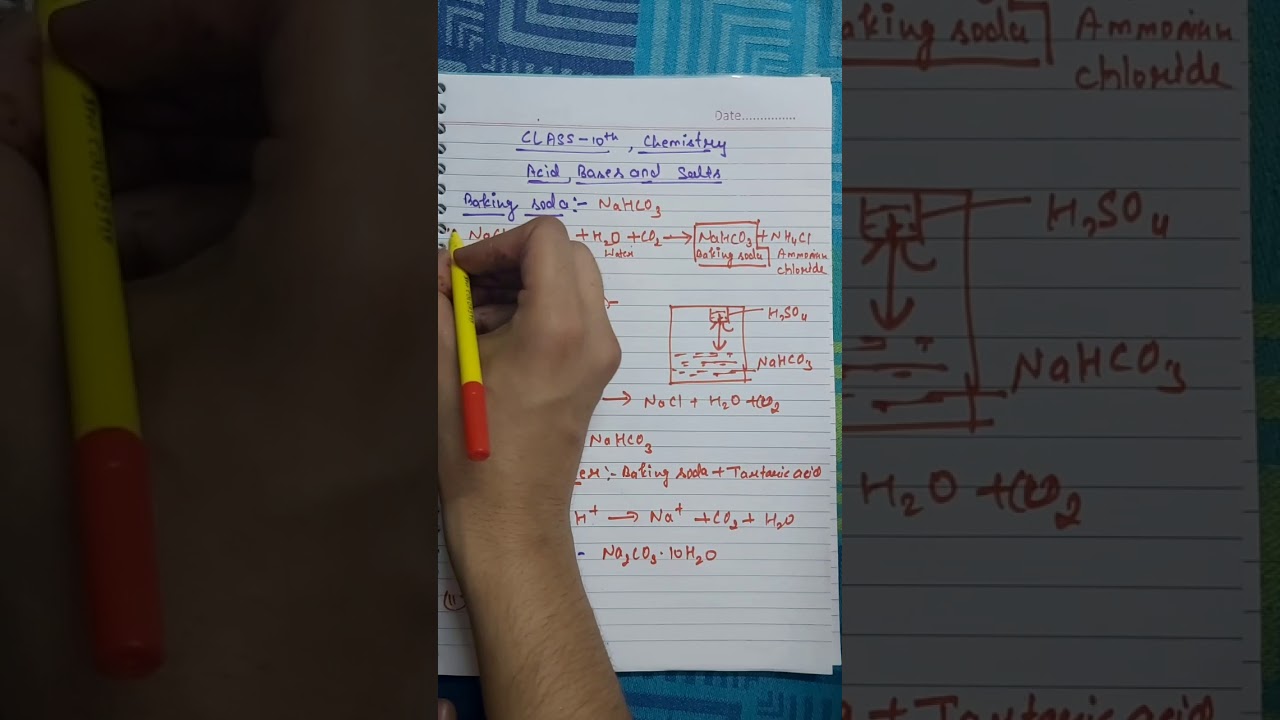 Date...............
CLASS-10th, Chemistry
Acid, Bases and Salts
Baking soda:- NaHCO3
NaCl +H2O +CO2 → NaHCO3 + NH4Cl
Water Baking soda Ammonium
chloride
H2SO4
NaHCO3
→ NaCl + H2O +CO2
NaHCO3
er:- Baking soda + Tartaric acid
H+ → Na+ +CO2 + H2O
- Na2CO3·10H2O
(11)
aking soda Ammonium
chloride
H2SO4
NaHCO3
H2O +CO2
+ Tartaric